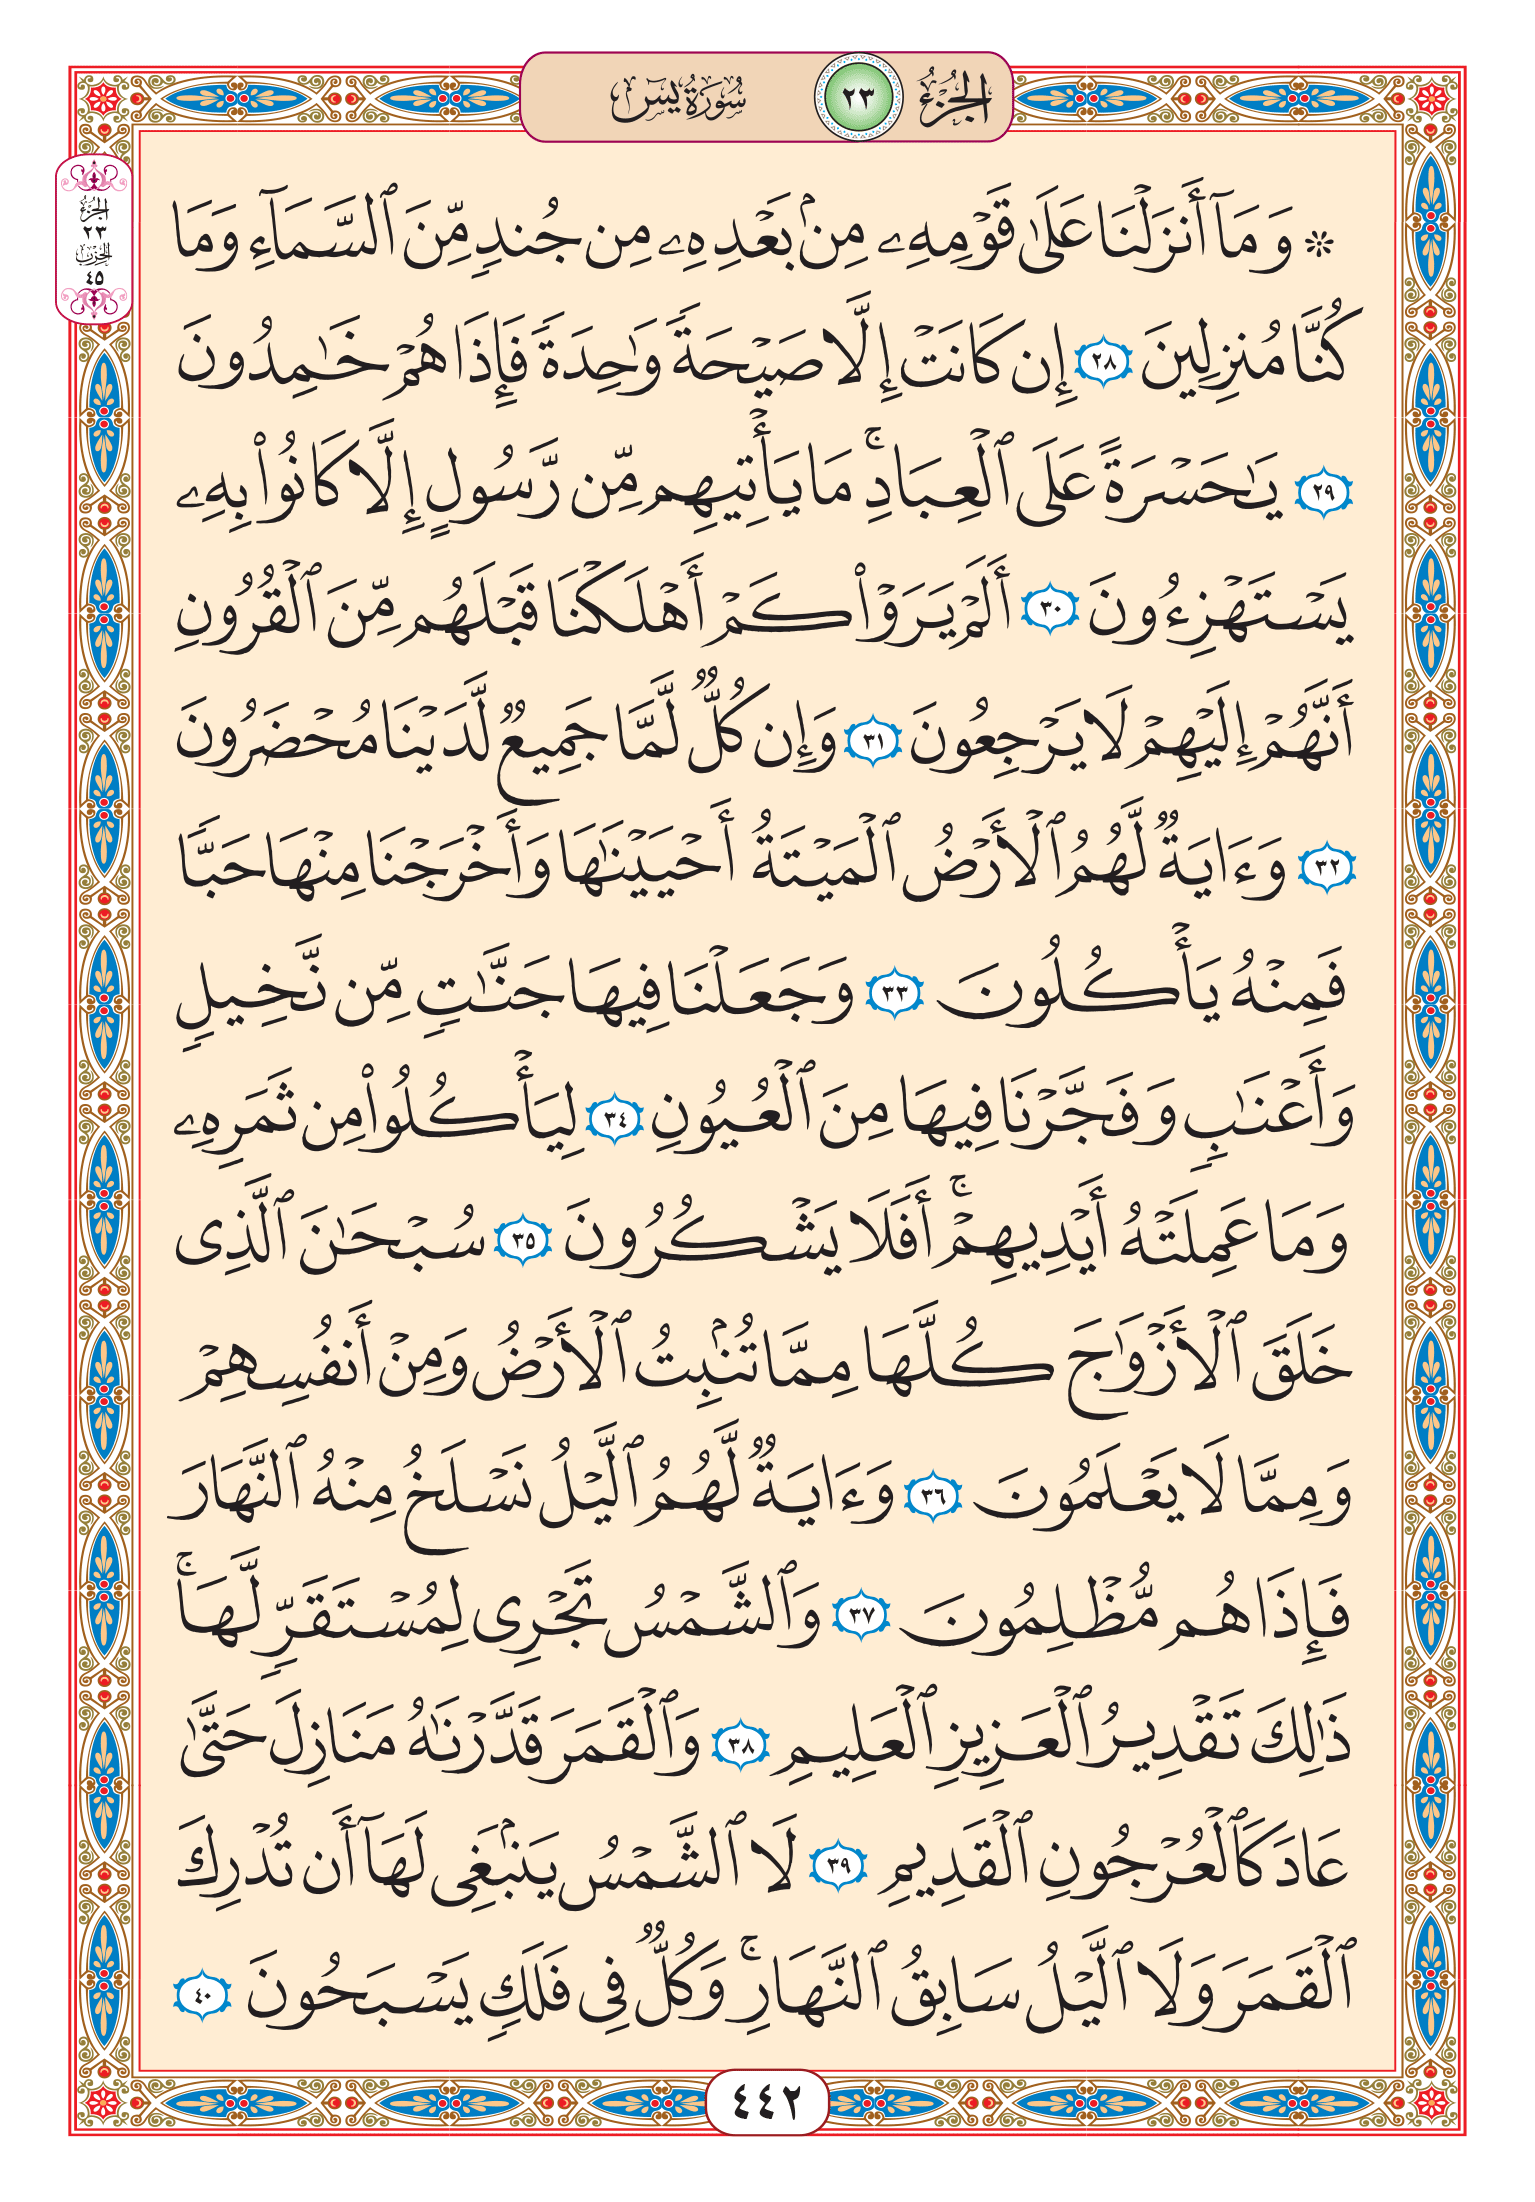 الجزء ٢٣ سورة يس
الجزء
٢٣
الحزب
٤٥
۞ وَمَآ أَنزَلْنَا عَلَىٰ قَوْمِهِۦ مِنۢ بَعْدِهِۦ مِن جُندٍ مِّنَ ٱلسَّمَآءِ وَمَا
كُنَّا مُنزِلِينَ ٢٨ إِن كَانَتْ إِلَّا صَيْحَةً وَٰحِدَةً فَإِذَا هُمْ خَـٰمِدُونَ
٢٩ يَـٰحَسْرَةً عَلَى ٱلْعِبَادِ ۚ مَا يَأْتِيهِم مِّن رَّسُولٍ إِلَّا كَانُوا۟ بِهِۦ
يَسْتَهْزِءُونَ ٣٠ أَلَمْ يَرَوْا۟ كَمْ أَهْلَكْنَا قَبْلَهُم مِّنَ ٱلْقُرُونِ
أَنَّهُمْ إِلَيْهِمْ لَا يَرْجِعُونَ ٣١ وَإِن كُلٌّ لَّمَّا جَمِيعٌ لَّدَيْنَا مُحْضَرُونَ
٣٢ وَءَايَةٌ لَّهُمُ ٱلْأَرْضُ ٱلْمَيْتَةُ أَحْيَيْنَـٰهَا وَأَخْرَجْنَا مِنْهَا حَبًّا
فَمِنْهُ يَأْكُلُونَ ٣٣ وَجَعَلْنَا فِيهَا جَنَّـٰتٍ مِّن نَّخِيلٍ
وَأَعْنَـٰبٍ وَفَجَّرْنَا فِيهَا مِنَ ٱلْعُيُونِ ٣٤ لِيَأْكُلُوا۟ مِن ثَمَرِهِۦ
وَمَا عَمِلَتْهُ أَيْدِيهِمْ ۚ أَفَلَا يَشْكُرُونَ ٣٥ سُبْحَـٰنَ ٱلَّذِى
خَلَقَ ٱلْأَزْوَٰجَ كُلَّهَا مِمَّا تُنۢبِتُ ٱلْأَرْضُ وَمِنْ أَنفُسِهِمْ
وَمِمَّا لَا يَعْلَمُونَ ٣٦ وَءَايَةٌ لَّهُمُ ٱلَّيْلُ نَسْلَخُ مِنْهُ ٱلنَّهَارَ
فَإِذَا هُم مُّظْلِمُونَ ٣٧ وَٱلشَّمْسُ تَجْرِى لِمُسْتَقَرٍّ لَّهَا ۚ
ذَٰلِكَ تَقْدِيرُ ٱلْعَزِيزِ ٱلْعَلِيمِ ٣٨ وَٱلْقَمَرَ قَدَّرْنَـٰهُ مَنَازِلَ حَتَّىٰ
عَادَ كَٱلْعُرْجُونِ ٱلْقَدِيمِ ٣٩ لَا ٱلشَّمْسُ يَنۢبَغِى لَهَآ أَن تُدْرِكَ
ٱلْقَمَرَ وَلَا ٱلَّيْلُ سَابِقُ ٱلنَّهَارِ ۚ وَكُلٌّ فِى فَلَكٍ يَسْبَحُونَ ٤٠
٤٤٢